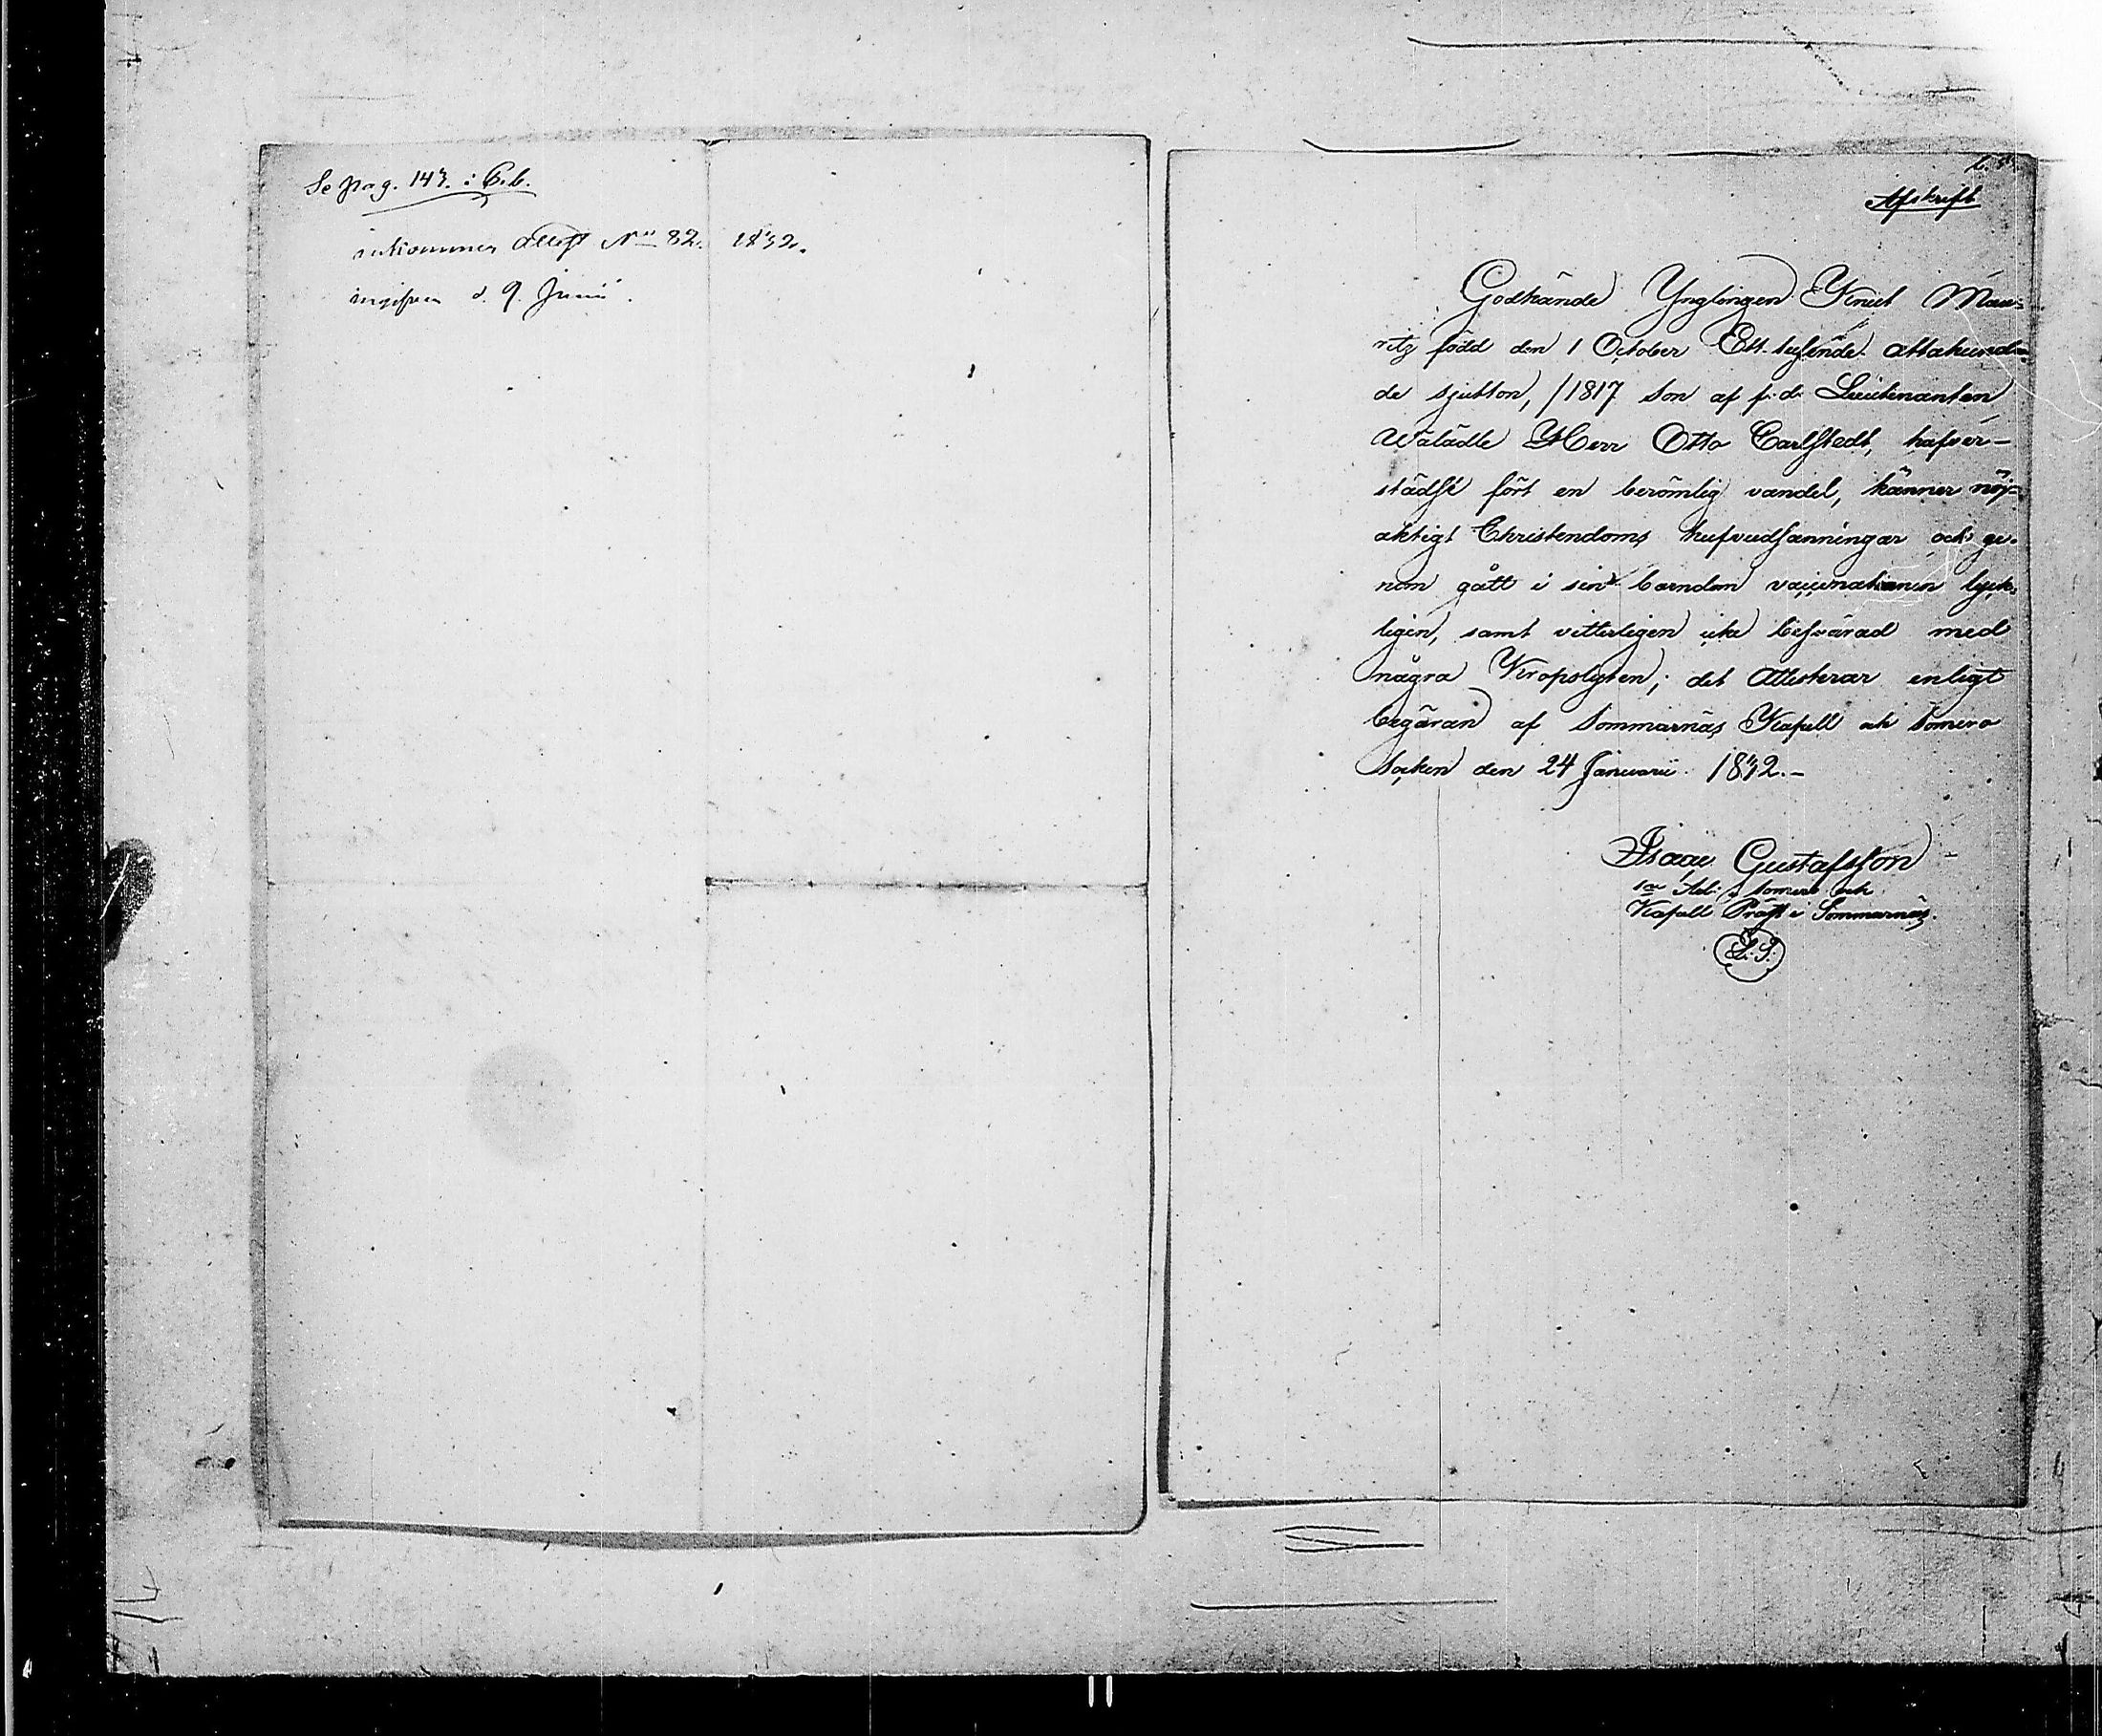 Se pag. 143. i C.b.
inkommen attest No 82. 1832.
ingifven d. 9. Junii.
Afskrift
Godkände Ynglingen Knut Mau-
ritz född den 1 October Ett tusende attahund-
de sjutton, /1817 son af f.d. Lieutenanten
Wälädle Herr Otto Carlstedt, hafver
städse fört en berömlig vandel, känner nöj-
aktigt Christendoms hufvudsanningar och ge-
nom gått i sin barndom vaccinationen lyck-
ligen, samt vitterligen icke besvärad med
några Kropslyten; det Attesterar enligt
begäran af Sommarnäs Kapell och Somero
Socken den 24 Januarii 1832.-
Isaac Gustafsson
i Somero och
Kapell Präst i Sommarnäs.
L.S.